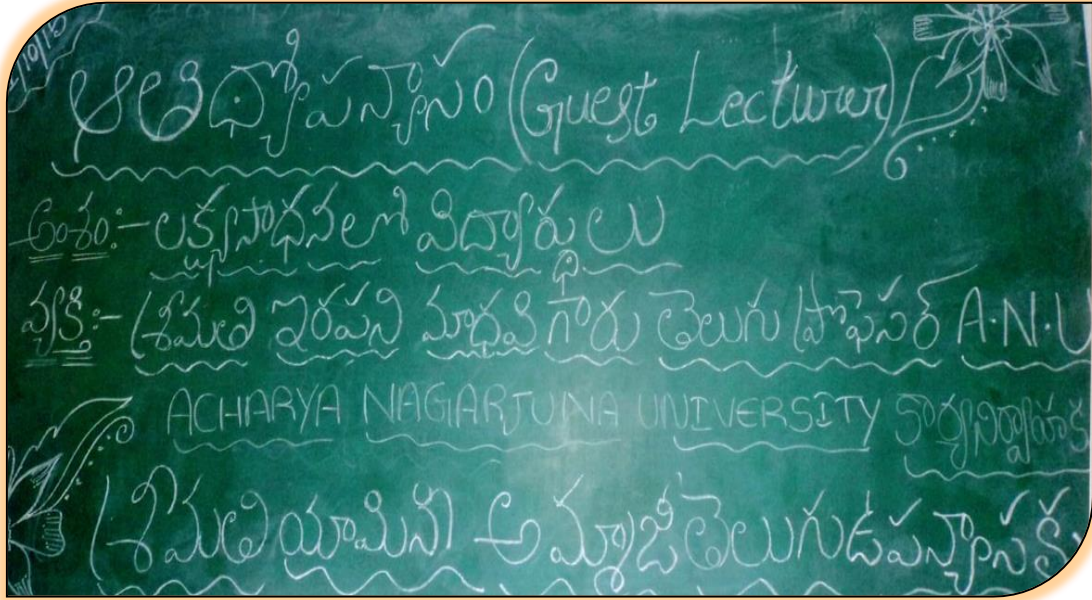 ఆతిధ్యోపన్యాసం (Guest Lecturer)
అంశం:- లక్ష్యసాధనలో విద్యార్థులు
వ్యక్తి:- శ్రీమతి ఇరపని మాధవి గారు తెలుగు ప్రొఫెసర్ A.N.U
ACHARYA NAGARJUNA UNIVERSITY
శ్రీమతి యామినీ అమ్మాజీ తెలుగు ఉపన్యాసక